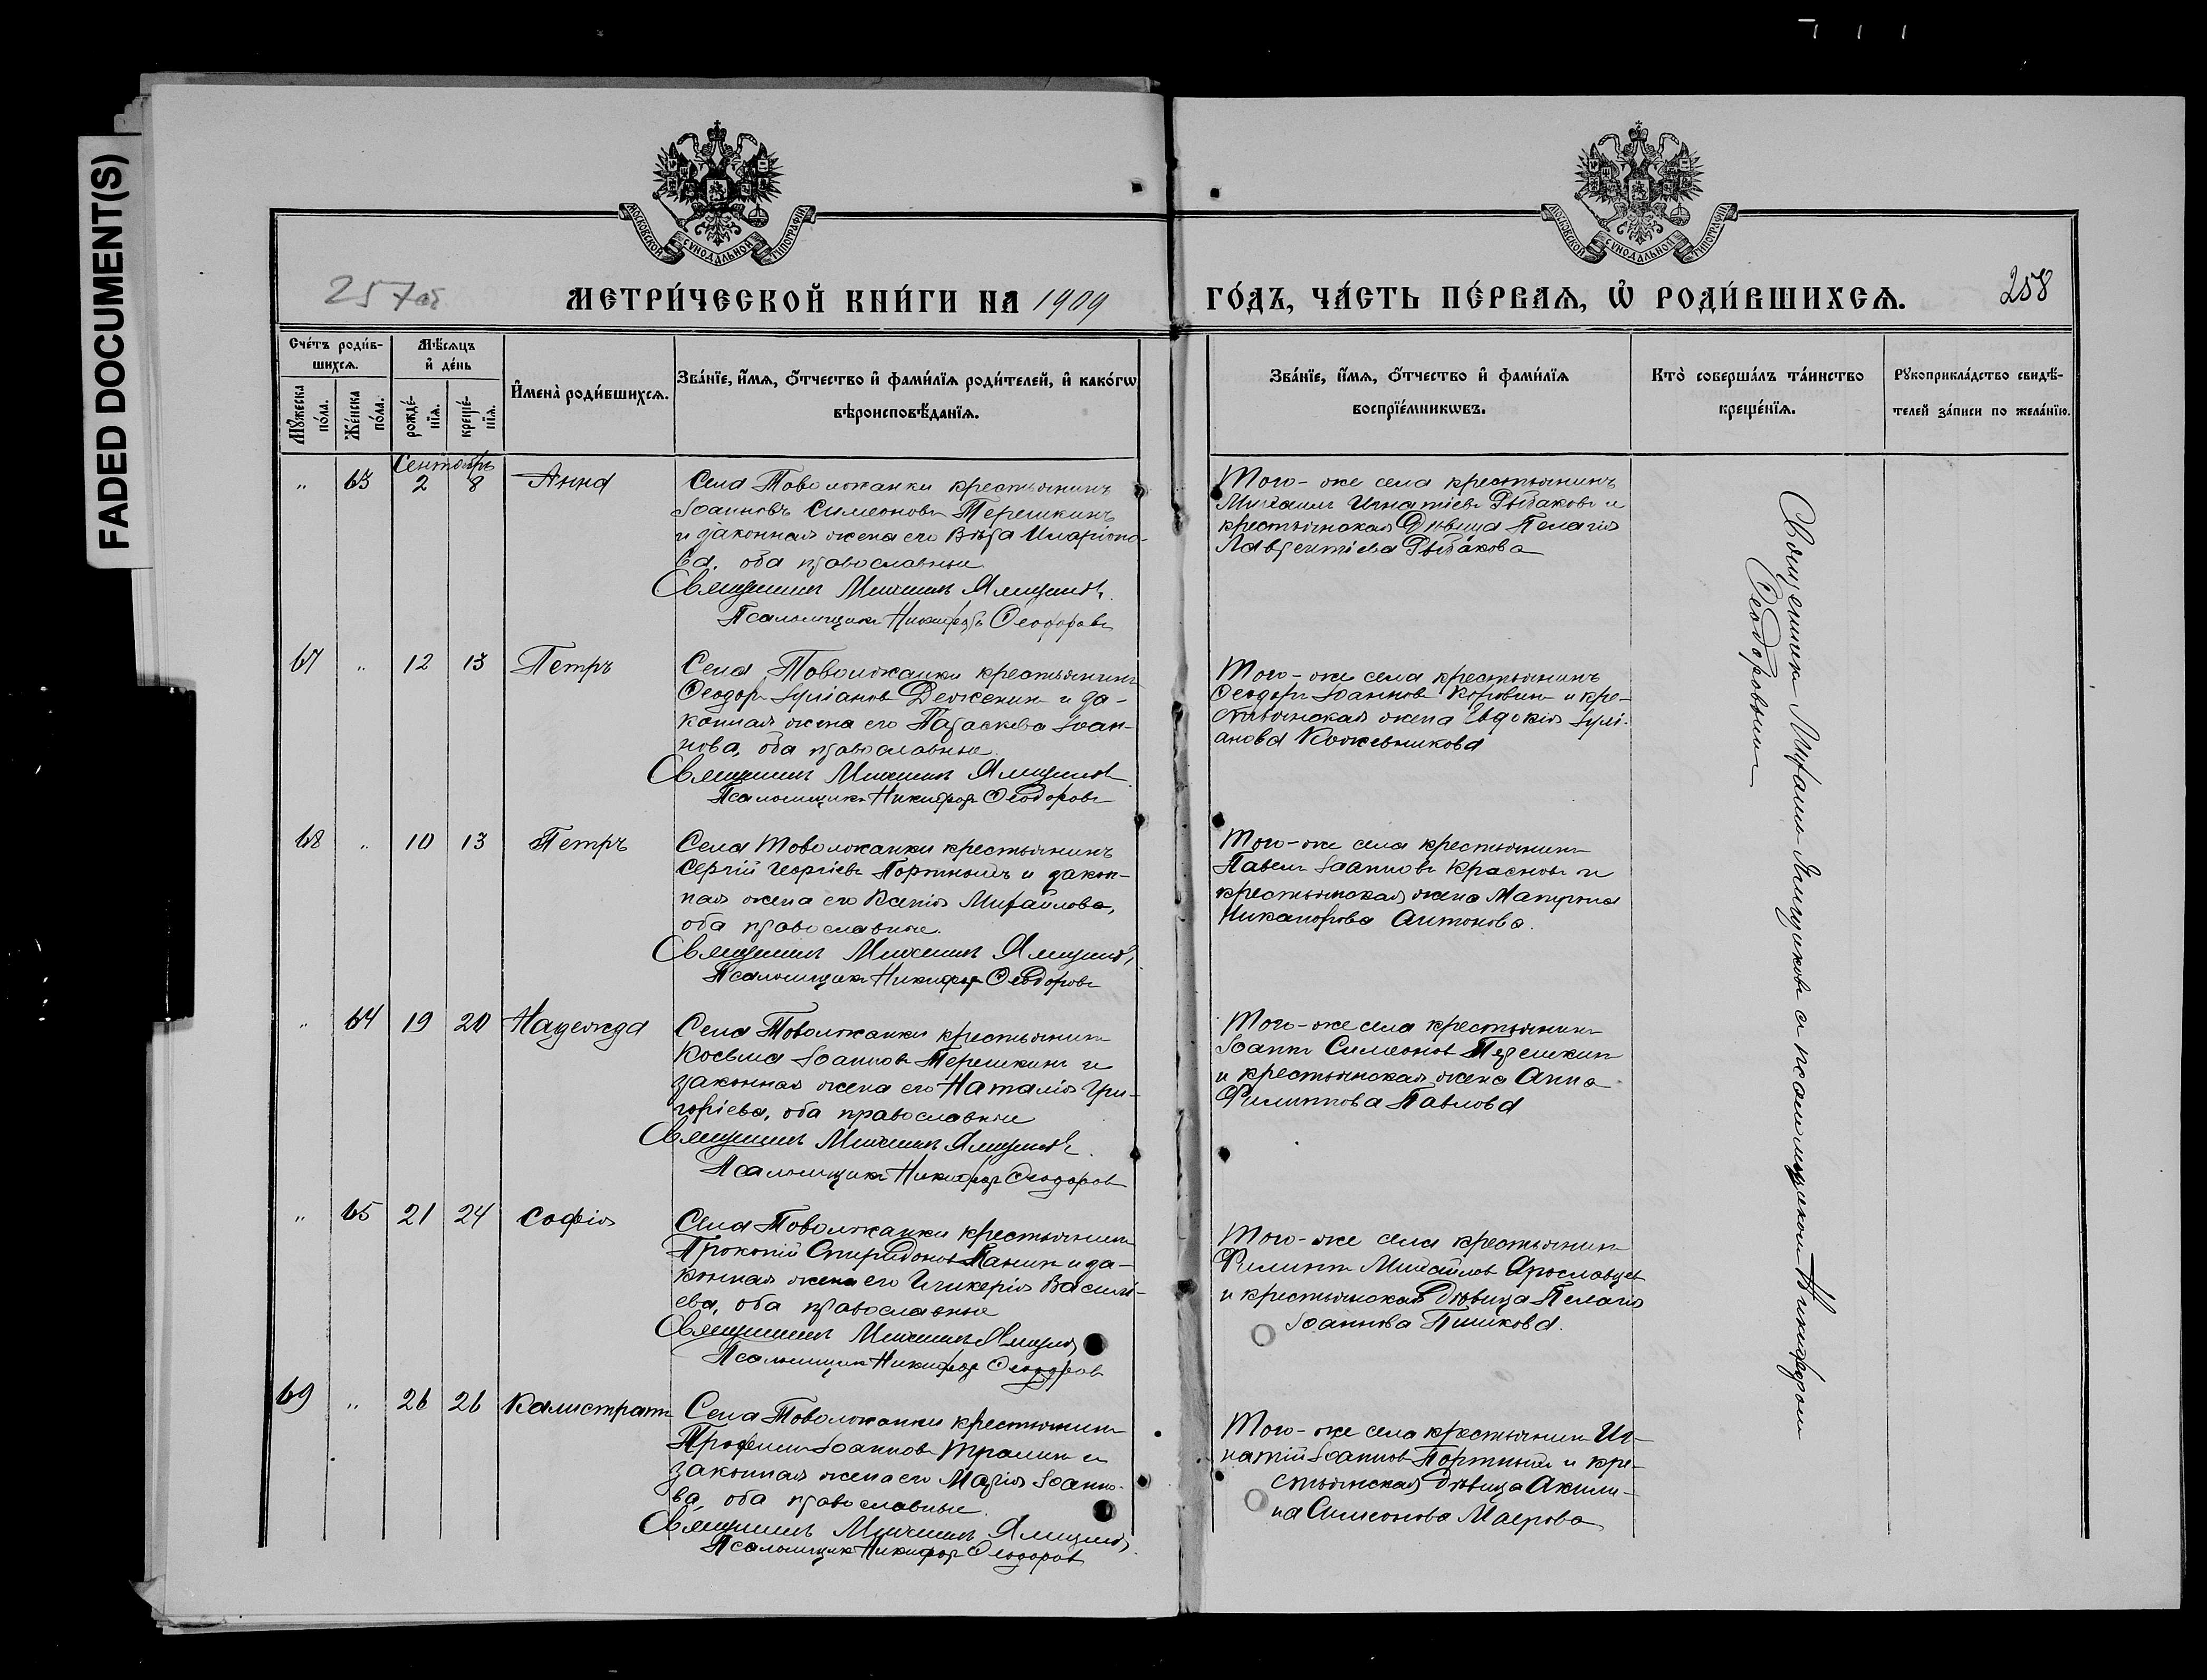 FADED DOCUMENT(S)
МОСКОВСКОЙ СУНОДАЛЬНОЙ ТИПОГРАФІИ
МОСКОВСКОЙ СУНОДАЛЬНОЙ ТИПОГРАФІИ
257об
МЕТРИ́ЧЕСКОЙ КНИ́ГИ НА 1909
ГО́ДЪ, ЧА́СТЬ ПЕ́РВАЯ, Ѡ РОДИ́ВШИХСЯ.
258
Сче́тъ роди́в-
шихся.
Мѣ́сяцъ
и де́нь
Имена̀ роди́вшихся.
Зва́нїе, и́мя, о́тчество и фами́лїя роди́телей, и како́гѡ
вѣроисповѣ́данїя.
Му́жеска
по́ла.
Же́нска
по́ла.
рожде́-
нїя.
креще́-
нїя.
Зва́нїе, и́мя, о́тчество и фами́лїя
воспрїе́мникѡвъ.
Кто̀ соверша́лъ та́инство
креще́нїя.
Рукоприкла́дство свидѣ́-
телей за́писи по жела́нїю.
Сентябрь
" 63 2 8 Анна
Села Товолжанки крестьянинъ
Іоанновъ Симеоновъ Терешкинъ
и законная жена его Вѣра Иларіоно-
ва, оба православные
Священникъ Михаилъ Ямщиковъ.
Псаломщикъ Никифоръ Ѳеодоровъ
Того-же села крестьянинъ
Михаилъ Игнатіевъ Рыбаковъ и
крестьянская дѣвица Пелагія
Лаврентіева Рыбакова
67 " 12 13 Петръ
Села Товолжанки крестьянинъ
Ѳеодоръ Іуліановъ Деженин и за-
конная жена его Параскева Іоан-
нова, оба православные
Священникъ Михаилъ Ямщиковъ
Псаломщикъ Никифоръ Ѳеодоровъ
Того-же села крестьянинъ
Ѳеодоръ Іоаннов Коровин и кре-
стьянская жена Евдокія Іулі-
анова Кожевникова
68 " 10 13 Петръ
Села Товолжанки крестьянинъ
Сергій Георгіевъ Портновъ и закон-
ная жена его Ксенія Михайлова,
оба православные.
Священникъ Михаилъ Ямщиковъ,
Псаломщикъ Никифоръ Ѳеодоровъ
Того-же села крестьянинъ
Павелъ Іоанновъ Красновъ и
крестьянская жена Матрона
Никанорова Антонова.
" 64 19 20 Надежда
Села Товолжанки крестьянинъ
Косьма Іоанновъ Терешкинъ и
законная жена его Наталія Гри-
горіева, оба православные
Священникъ Михаилъ Ямщиковъ.
Псаломщикъ Никифоръ Ѳеодоров
Того-же села крестьянинъ
Іоаннъ Симеонов Терешкин
и крестьянская жена Анна
Филиппова Павлова
" 65 21 24 Софія
Села Товолжанки крестьянинъ
Прокопій Спиридонов Панин и за-
конная жена его Гликерія Василі-
ева, оба православные
Священникъ Михаилъ Ямщиковъ
Псаломщикъ Никифоръ Ѳеодоров
Того-же села крестьянинъ
Филиппъ Михайлов Ярославцев
и крестьянская дѣвица Пелагія
Іоаннова Пишкова.
69 " 26 26 Калистратъ
Села Товолжанки крестьянинъ
Трофимъ Іоанновъ Тралин и
законная жена его Марія Іоанно-
ва, оба православные.
Священникъ Михаилъ Ямщиковъ.
Псаломщикъ Никифоръ Ѳеодоров
Того-же села крестьянинъ Иг-
натій Іоаннов Портнов и кре-
стьянская дѣвица Акили-
на Симеонова Маерова
Священникъ Михаилъ Ямщиковъ с псаломщикомъ Никифоромъ
Ѳеодоровымъ